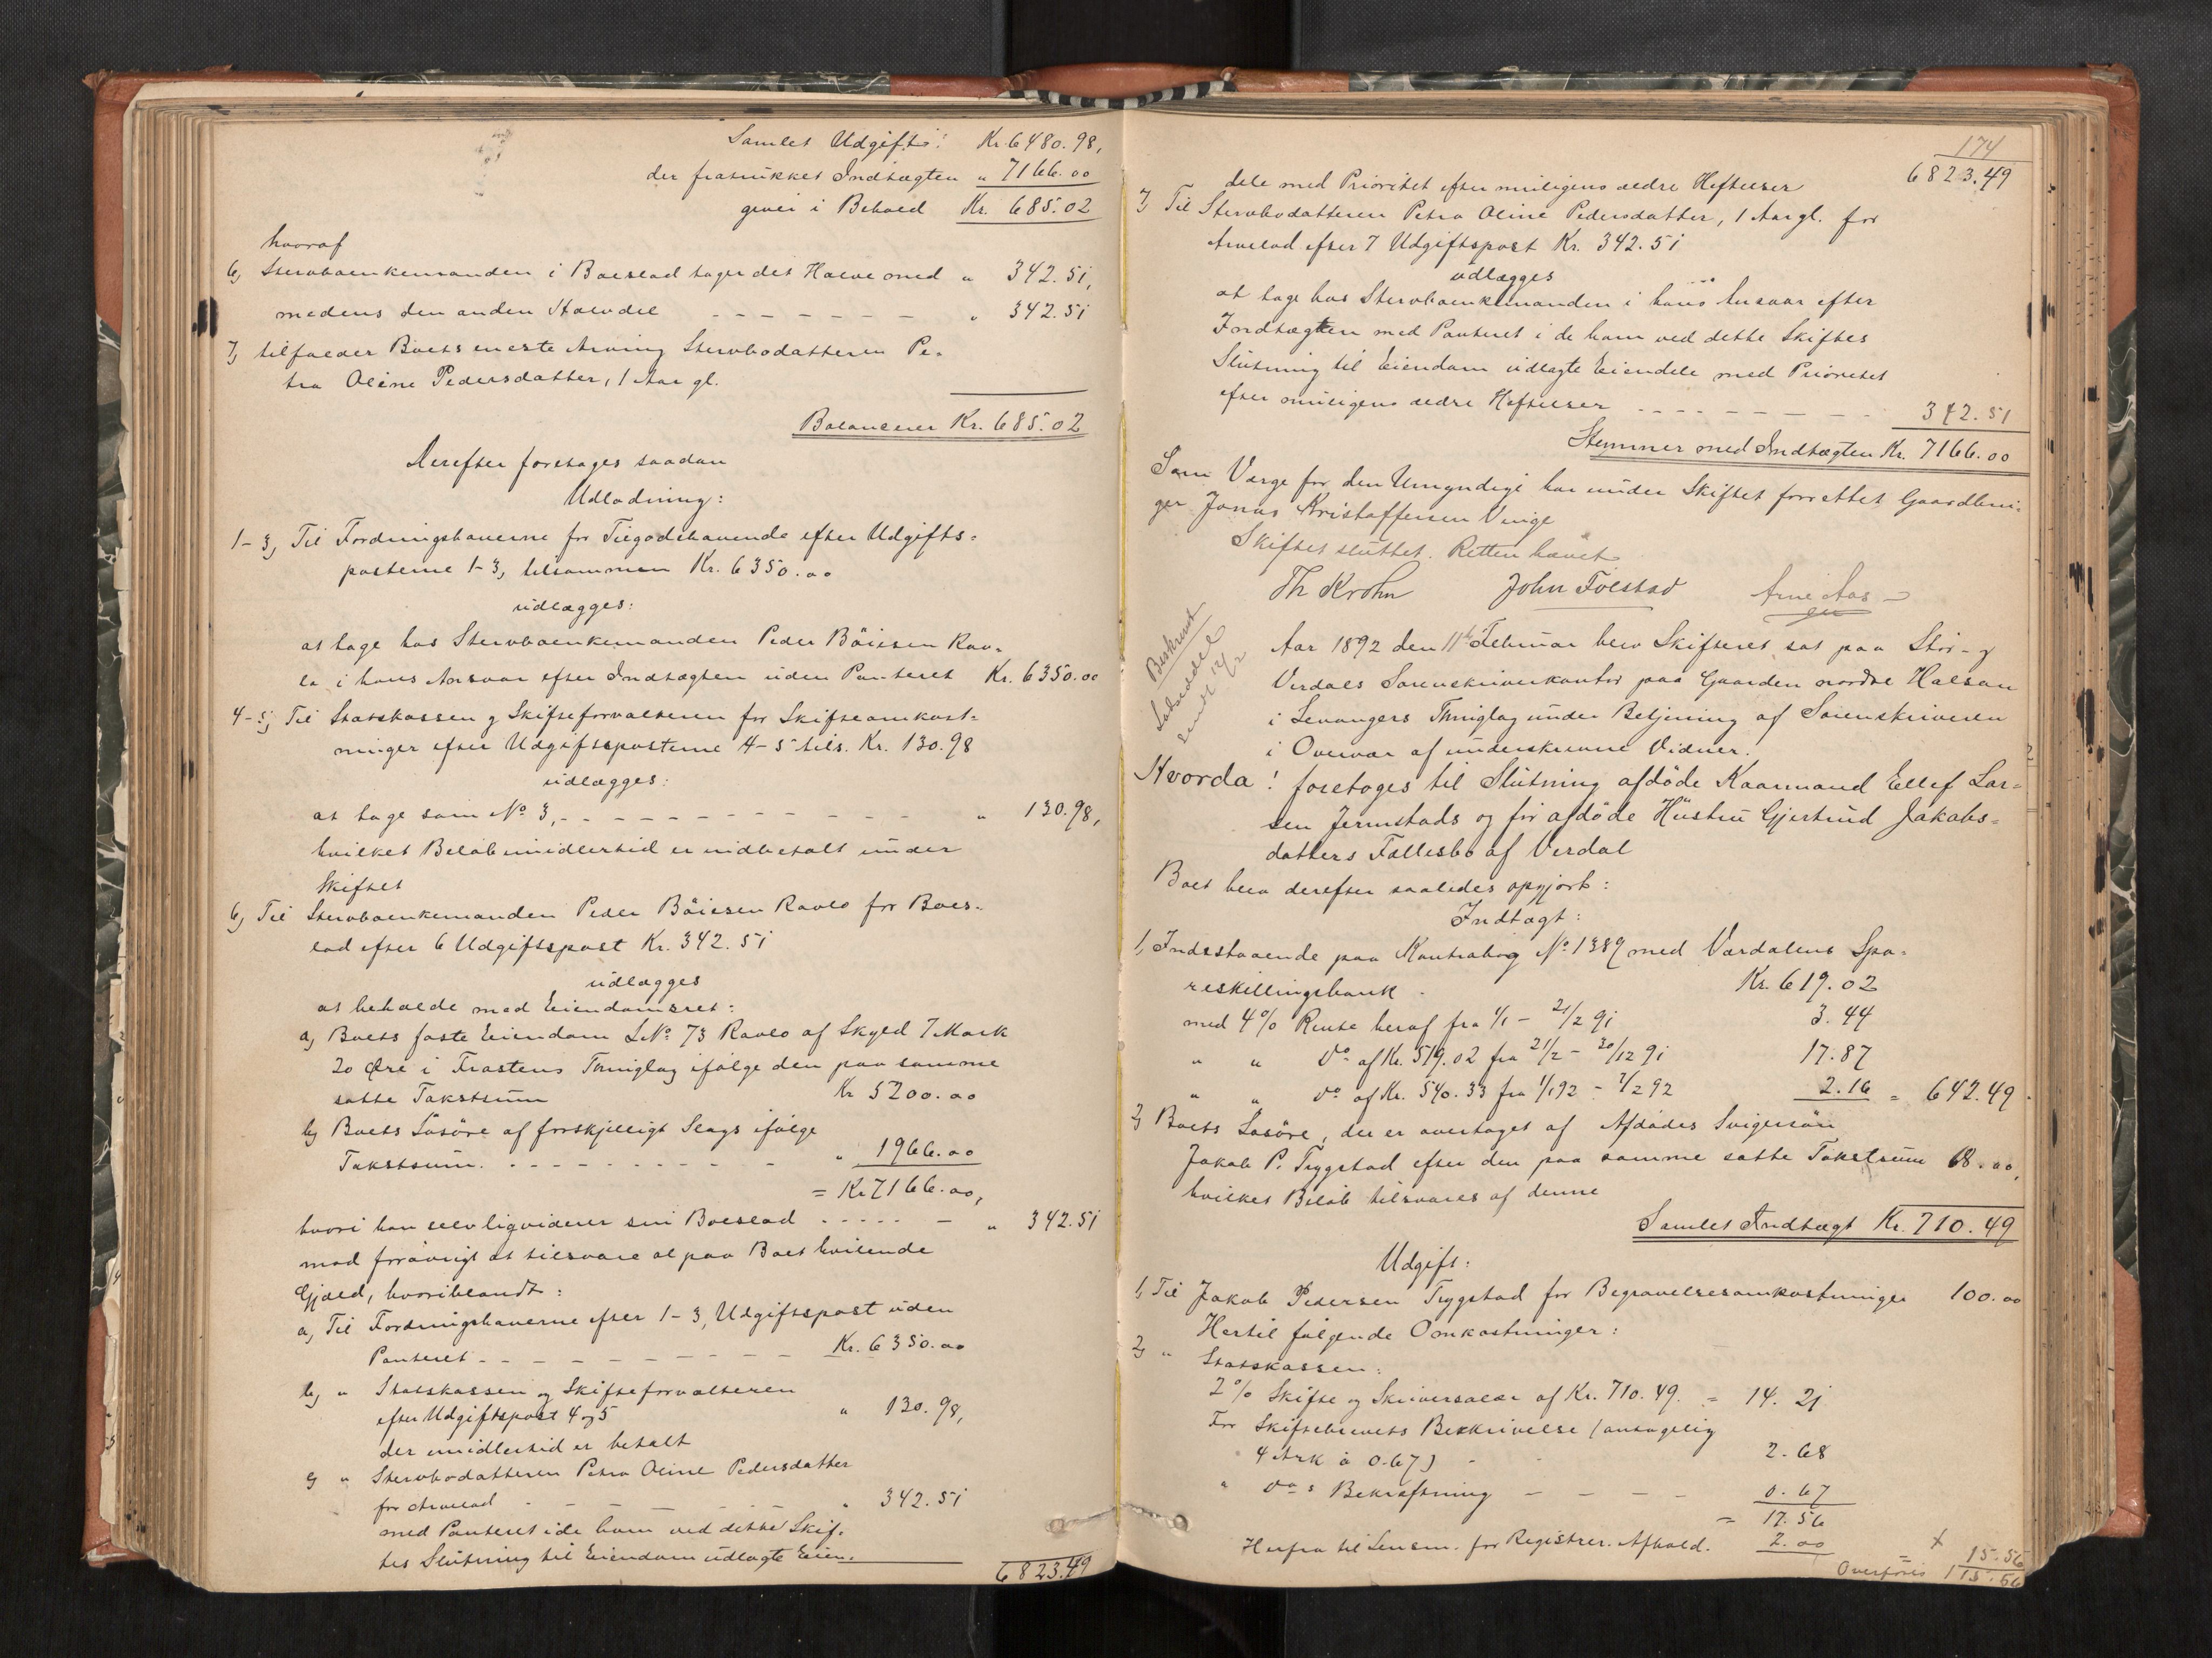 Samlet Udgift: Kr. 6480.98,
der fratrukket Indtægten " 7166.00
giver i Behold Kr. 685.02
hvoraf
6, Stervboenkemanden i Boeslod tager det Halve med " 342.51,
medens den anden Halvdel - - - - - - - " 342.51
7, tilfalder Boets eneste Arving Stervbodatteren Pe-
tra Oline Pedersdatter, 1 Aar gl.
Balancerer Kr. 685.02
Derefter foretages saadan
Udlodning:
1-3, Til Fordringshaverne for Tilgodehavende efter Udgifts-
posterne 1-3, tilsammen Kr. 6350.00
udlægges:
at tage hos Stervboenkemanden Peder Böiesen Rav-
lo i hans Ansvar efter Indtægten uden Panteret Kr. 6350.00
4-5, Til Statskassen og Skifteforvalteren for Skifteomkost-
ninger efter Udgiftsposterne 4-5 tils. Kr. 130.98
udlægges:
at tage som No 3, - - - - - - - - - - " 130.98,
hvilket Belöb imidlertid er indbetalt under
Skiftet
6, Til Stervboenkemanden Peder Böiesen Ravlo for Boes-
lod efter 6 Udgiftspost Kr. 342.51
udlægges
at beholde med Eiendomsret:
a, Boets faste Eiendom L.No 73 Ravlo af Skyld 7 Mark
20 Øre i Frostens Thinglag ifölge den paa samme
satte Takstsum Kr 5200.00
b, Boets Lösöre af forskjelligt Slags ifölge
Takstsum. - - - - - - - - - " 1966.00
= Kr 7166.00,
hvori han selv ligviderer sin Boeslod - - - - - - " 342.51
mod forövrigt at tilsvare al paa Boet hvilende
Gjæld, hvoriblandt:
a, Til Fordringshaverne efter 1-3, Udgiftspost uden
Panteret - - - - - - - - - Kr. 6350.00
b, " Statskassen og Skifteforvalteren
efter Udgiftspost 4 og 5 " 130.98,
der imidlertid er betalt
c, " Stervbodatteren Petra Oline Pedersdatter
for Arvelod - - - - - - " 342.51
med Panteret i de ham ved dette Skif-
tes Slutning til Eiendom udlagte Eien-
6823.49
174
6823.49
dele med Prioritet efter muligens ældre Heftelser
7, Til Stervbodatteren Petra Oline Pedersdatter, 1 Aar gl. for
Arvelod efter 7 Udgiftspost Kr. 342.51
udlægges
at tage hos Stervboenkemanden i hans Ansvar efter
Indtægten med Panteret i de ham ved dette Skiftes
Slutning til Eiendom udlagte Eiendele med Prioritet
efter muligens ældre Heftelser - - - - - - - 342.51
Stemmer med Indtægten Kr. 7166.00
Som Værge for den Umyndige har under Skiftet forrettet Gaardbru-
ger Jonas Kristoffersen Vinge
Skiftet sluttet. Retten hævet
Th Krohn John Tolstad Arne Aas
Beskrevet
Loddeddel
sendt 12/2
Aar 1892 den 11te Februar blev Skifteret sat paa Stör- og
Verdals Sorenskriverkontor paa Gaarden nordre Halsan
i Levangers Thinglag under Betjening af Sorenskriveren
i Overvær af underskrevne Vidner.
Hvorda! foretoges til Slutning afdöde Kaarmand Ellef Lar-
sen Jermstads og för afdöde Hustru Gjertrud Jakobs-
datters Fællesbo af Verdal
Boet blev derefter saaledes opgjort:
Indtægt:
1, Indestaaende paa Kontrabog No 1389 med Værdalens Spa-
reskillingsbank - Kr. 619.02
med 4% Rente heraf fra 1/1 - 21/2 91 3.44
" " do af Kr. 519.02 fra 21/2 - 30/12 91 17.87
" " do af Kr. 540.33 fra 1/1 92 - 7/2 92 2.16 = 642.49
2, Boets Lösöre, der er overtaget af Afdödes Svigersön
Jakob P. Trygstad efter den paa samme satte Takstsum 68.00,
hvilket Belöb tilsvares af denne
Samlet Indtægt Kr. 710.49
Udgift:
1, Til Jakob Pedersen Trygstad for Begravelsesomkostninger 100.00
Hertil fölgende Omkostninger:
2, " Statskassen:
2% Skifte og Skriversalær af Kr. 710.49. = 14.21
For Skiftebrevets Beskrivelse (antagelig
4 Ark à 0.67) - - 2.68
" do s Bekræftning - - - - 0.67
= 17.56
Herfra til Lensm. for Registrer. Afhold. 2.00 = 15.56
Overföres 115.56